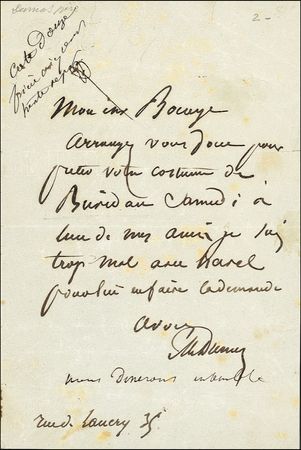 Dumas père
2 -
Mon cher Bocage
Arrangez vous donc pour
preter votre costume de
Buridan Samedi à
l'un de mes amis je suis
trop mal avec Harel
pour lui en faire la demande
a vous
Al Dumas
nous dinerons ensemble
rue de Lancry 35